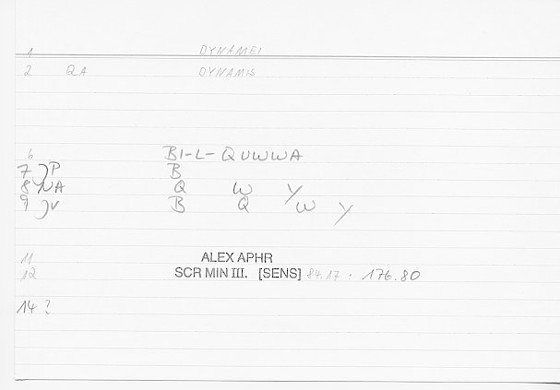 1 DYNAMEI
2 QA DYNAMIS
6 BI-L-QUWWA
7 )P B
8 NA Q W Y
9 )V B Q W Y
11 ALEX APHR
12 SCR MIN III. [SENS] 84.17 + 176.80
14 ?